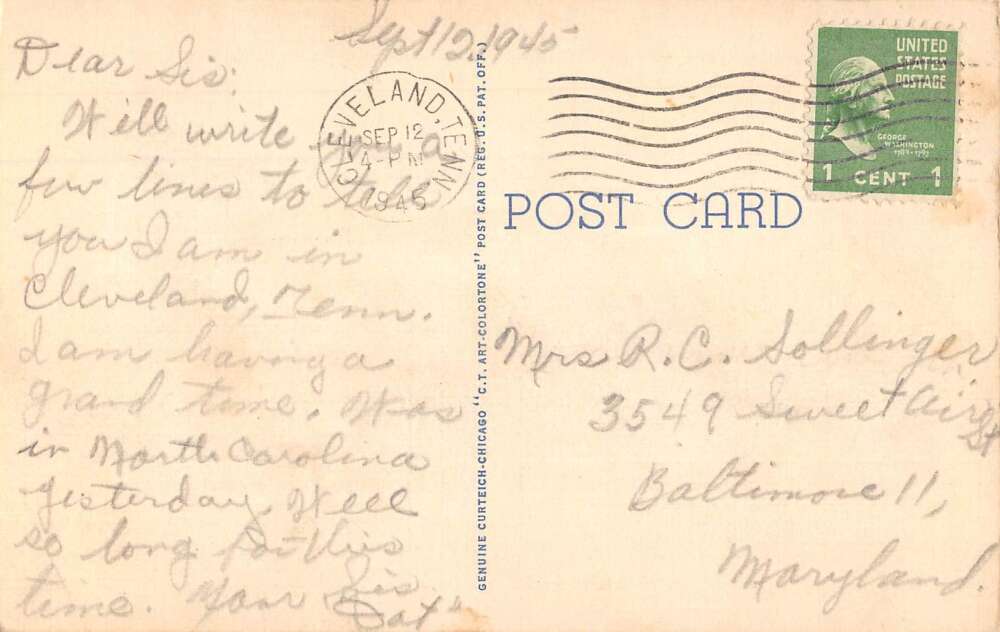 Sept 12, 1945
Dear Sis:
Will write you a
few lines to tell
you I am in
Cleveland, Tenn.
I am having a
grand time. Was
in North Carolina
yesterday. Well
so long for this
time. Your Sis
Dot"
CLEVELAND, TENN.
SEP 12
4-PM
1945
GENUINE CURTEICH-CHICAGO "C.T. ART-COLORTONE" POST CARD (REG. U.S. PAT. OFF.)
UNITED
STATES
POSTAGE
GEORGE
WASHINGTON
1789-1797
1 CENT 1
POST CARD
Mrs R. C. Sollinger
3549 Sweet Air
St
Baltimore 11,
Maryland.